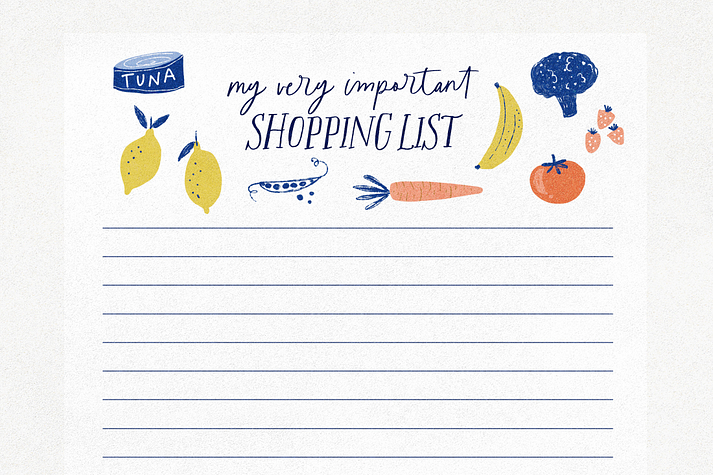 TUNA
my very important
SHOPPING LIST